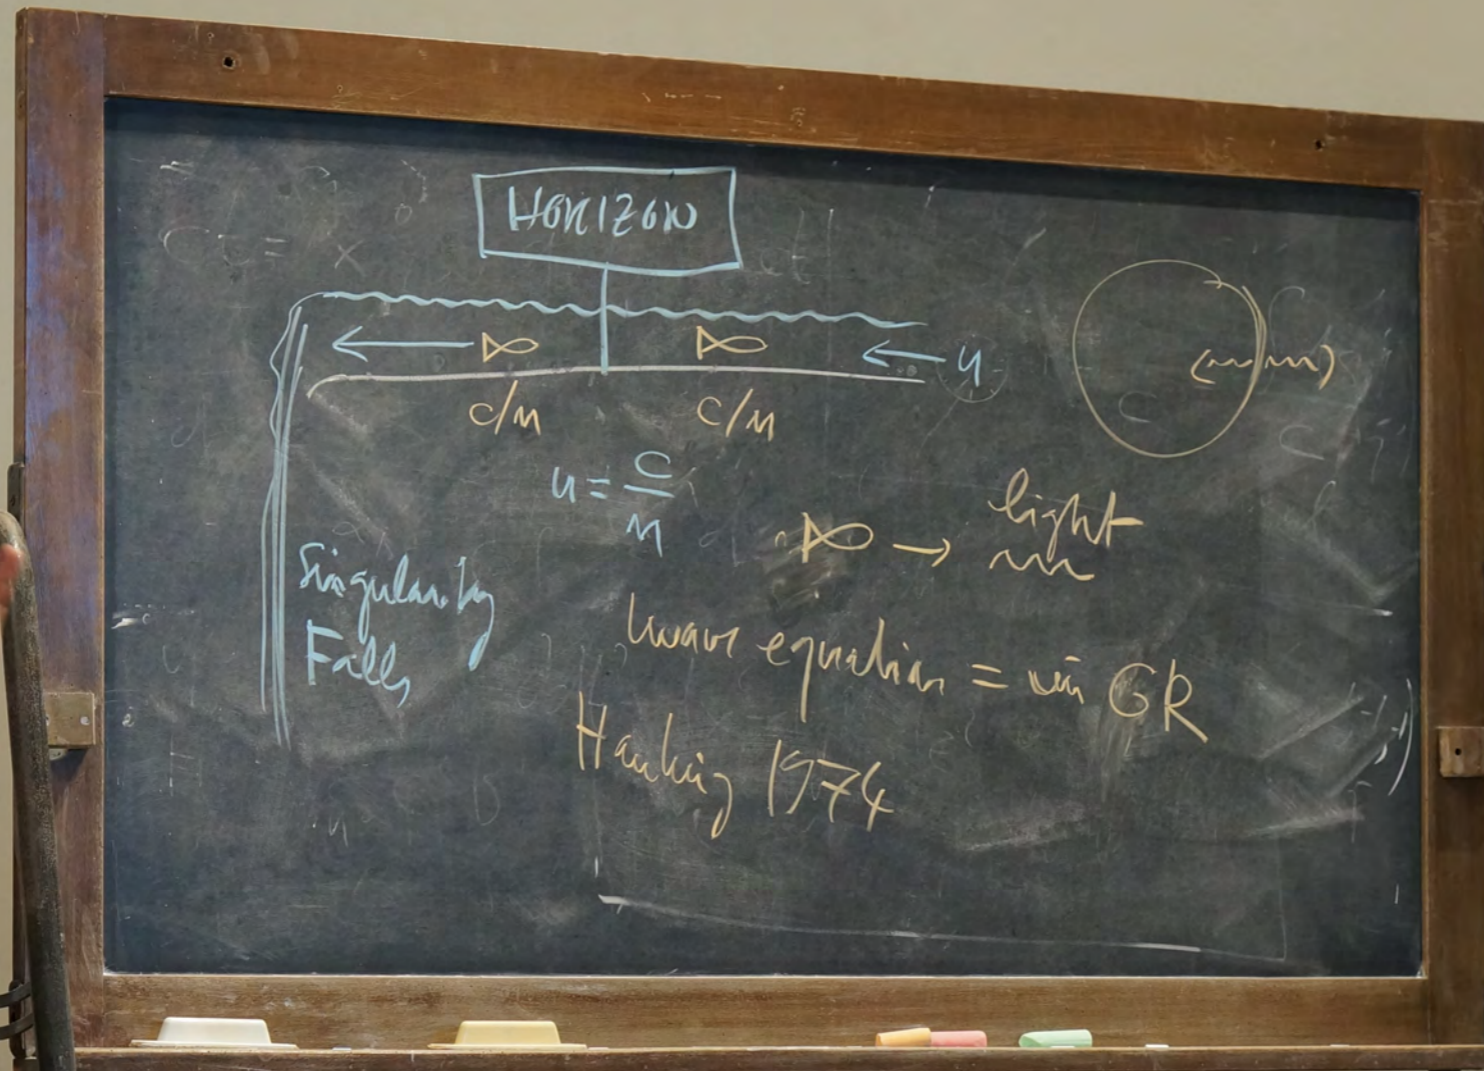 HORIZON
u
c/n c/n
u = c/n
light
Singularity
Falls
wave equation = in GR
Hawking 1974